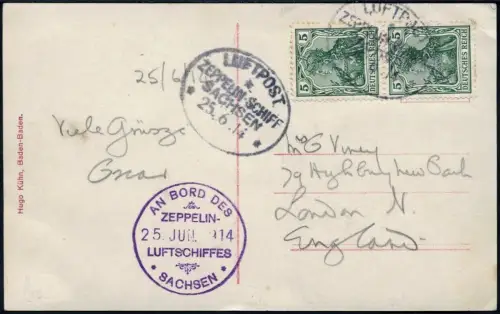 25/6/14
LUFTPOST
ZEPPELIN-SCHIFF
SACHSEN
25.6.14
LUFTPOST
5 DEUTSCHES REICH 5
5 DEUTSCHES REICH 5
Viele Grüsse
AN BORD DES
ZEPPELIN-
25. JUN. 1914
LUFTSCHIFFES
* SACHSEN *
79 Highbury New Park
London N.
England
Hugo Kühn, Baden-Baden.